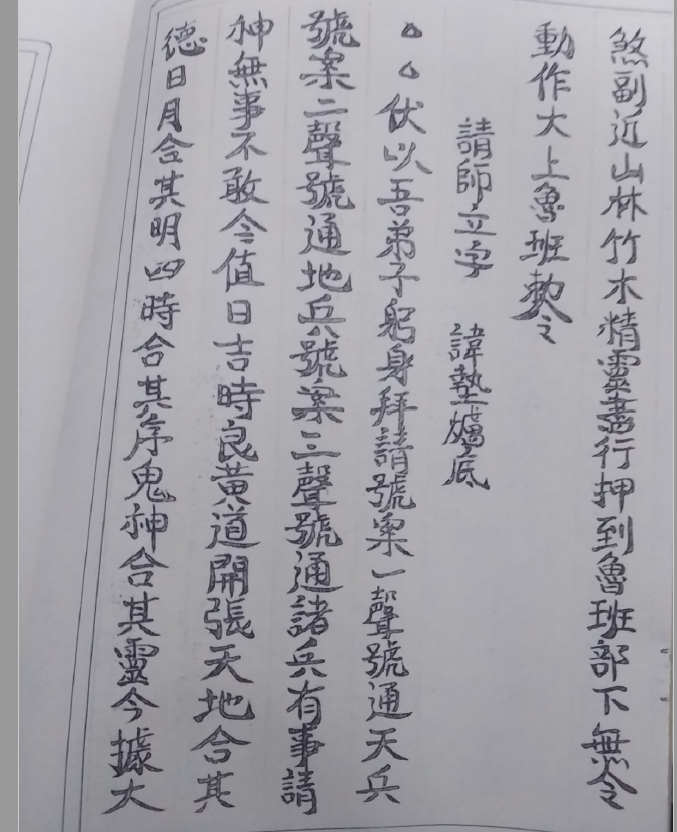 煞副近山林竹木精靈盡行押到魯班部下無令
動作大上魯班勅令
請師立字 諱墊爐底
伏以吾弟子躬身拜請號案一聲號通天兵
號案二聲號通地兵號案三聲號通諸兵有事請
神無事不敢今值日吉時良黃道開張天地合其
德日月合其明四時合其序鬼神合其靈今據大